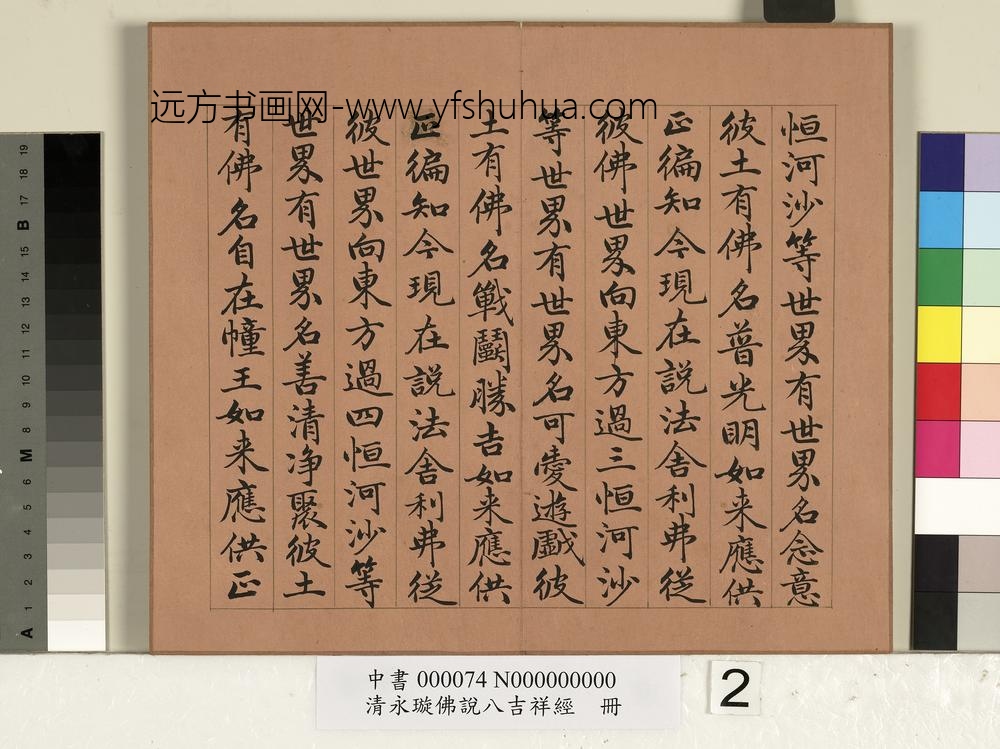 远方书画网-www.yfshuhua.com
恒河沙等世界有世界名念意
彼土有佛名普光明如来應供
正徧知今現在説法舎利弗從
彼佛世界向東方過三恒河沙
等世界有世界名可愛遊戯彼
土有佛名戰鬬勝吉如来應供
正徧知今現在説法舎利弗從
彼世界向東方過四恒河沙等
世界有世界名善清净聚彼土
有佛名自在幢王如来應供正
中書 000074 N000000000
清永璇佛說八吉祥經 冊
2
A 1 2 3 4 5 6 M 8 9 10 11 12 13 14 15 B 17 18 19